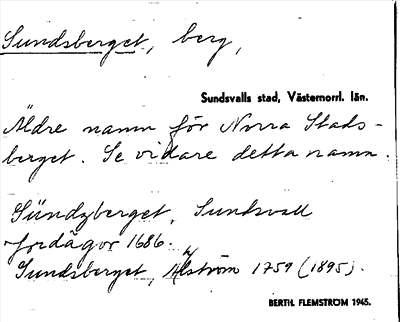 Sundsberget, berg,
Sundsvalls stad, Västernorrl. län.
Äldre namn för Norra Stads-
berget. Se vidare detta namn.
Sündzberget, Sundsvall
jordägor 1686.
Sundsberget, Hülström 1759 (1895).
BERTIL FLEMSTRÖM 1945.